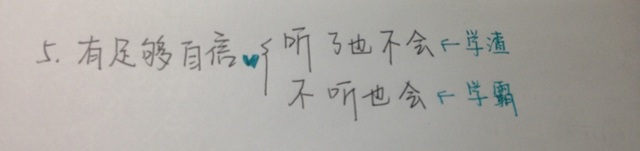 5. 有足够自信 { 听了也不会 ← 学渣
不听也会 ← 学霸